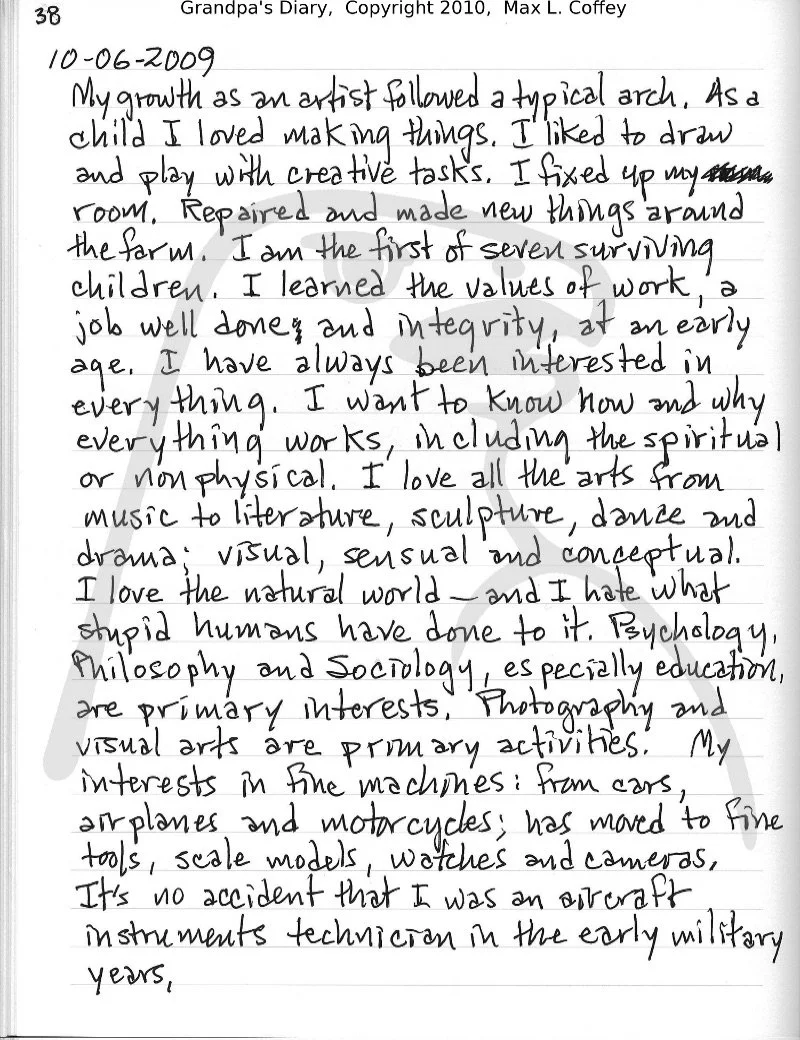 38
Grandpa's Diary, Copyright 2010, Max L. Coffey
10-06-2009
My growth as an artist followed a typical arch. As a
child I loved making things. I liked to draw
and play with creative tasks. I fixed up my
room. Repaired and made new things around
the farm. I am the first of seven surviving
children. I learned the values of work, a
job well done; and integrity, at an early
age. I have always been interested in
everything. I want to know how and why
everything works, including the spiritual
or nonphysical. I love all the arts from
music to literature, sculpture, dance and
drama; visual, sensual and conceptual.
I love the natural world – and I hate what
stupid humans have done to it. Psychology,
Philosophy and Sociology, especially education,
are primary interests. Photography and
visual arts are primary activities. My
interests in fine machines: from cars,
airplanes and motorcycles; has moved to fine
tools, scale models, watches and cameras.
It's no accident that I was an aircraft
instruments technician in the early military
years,